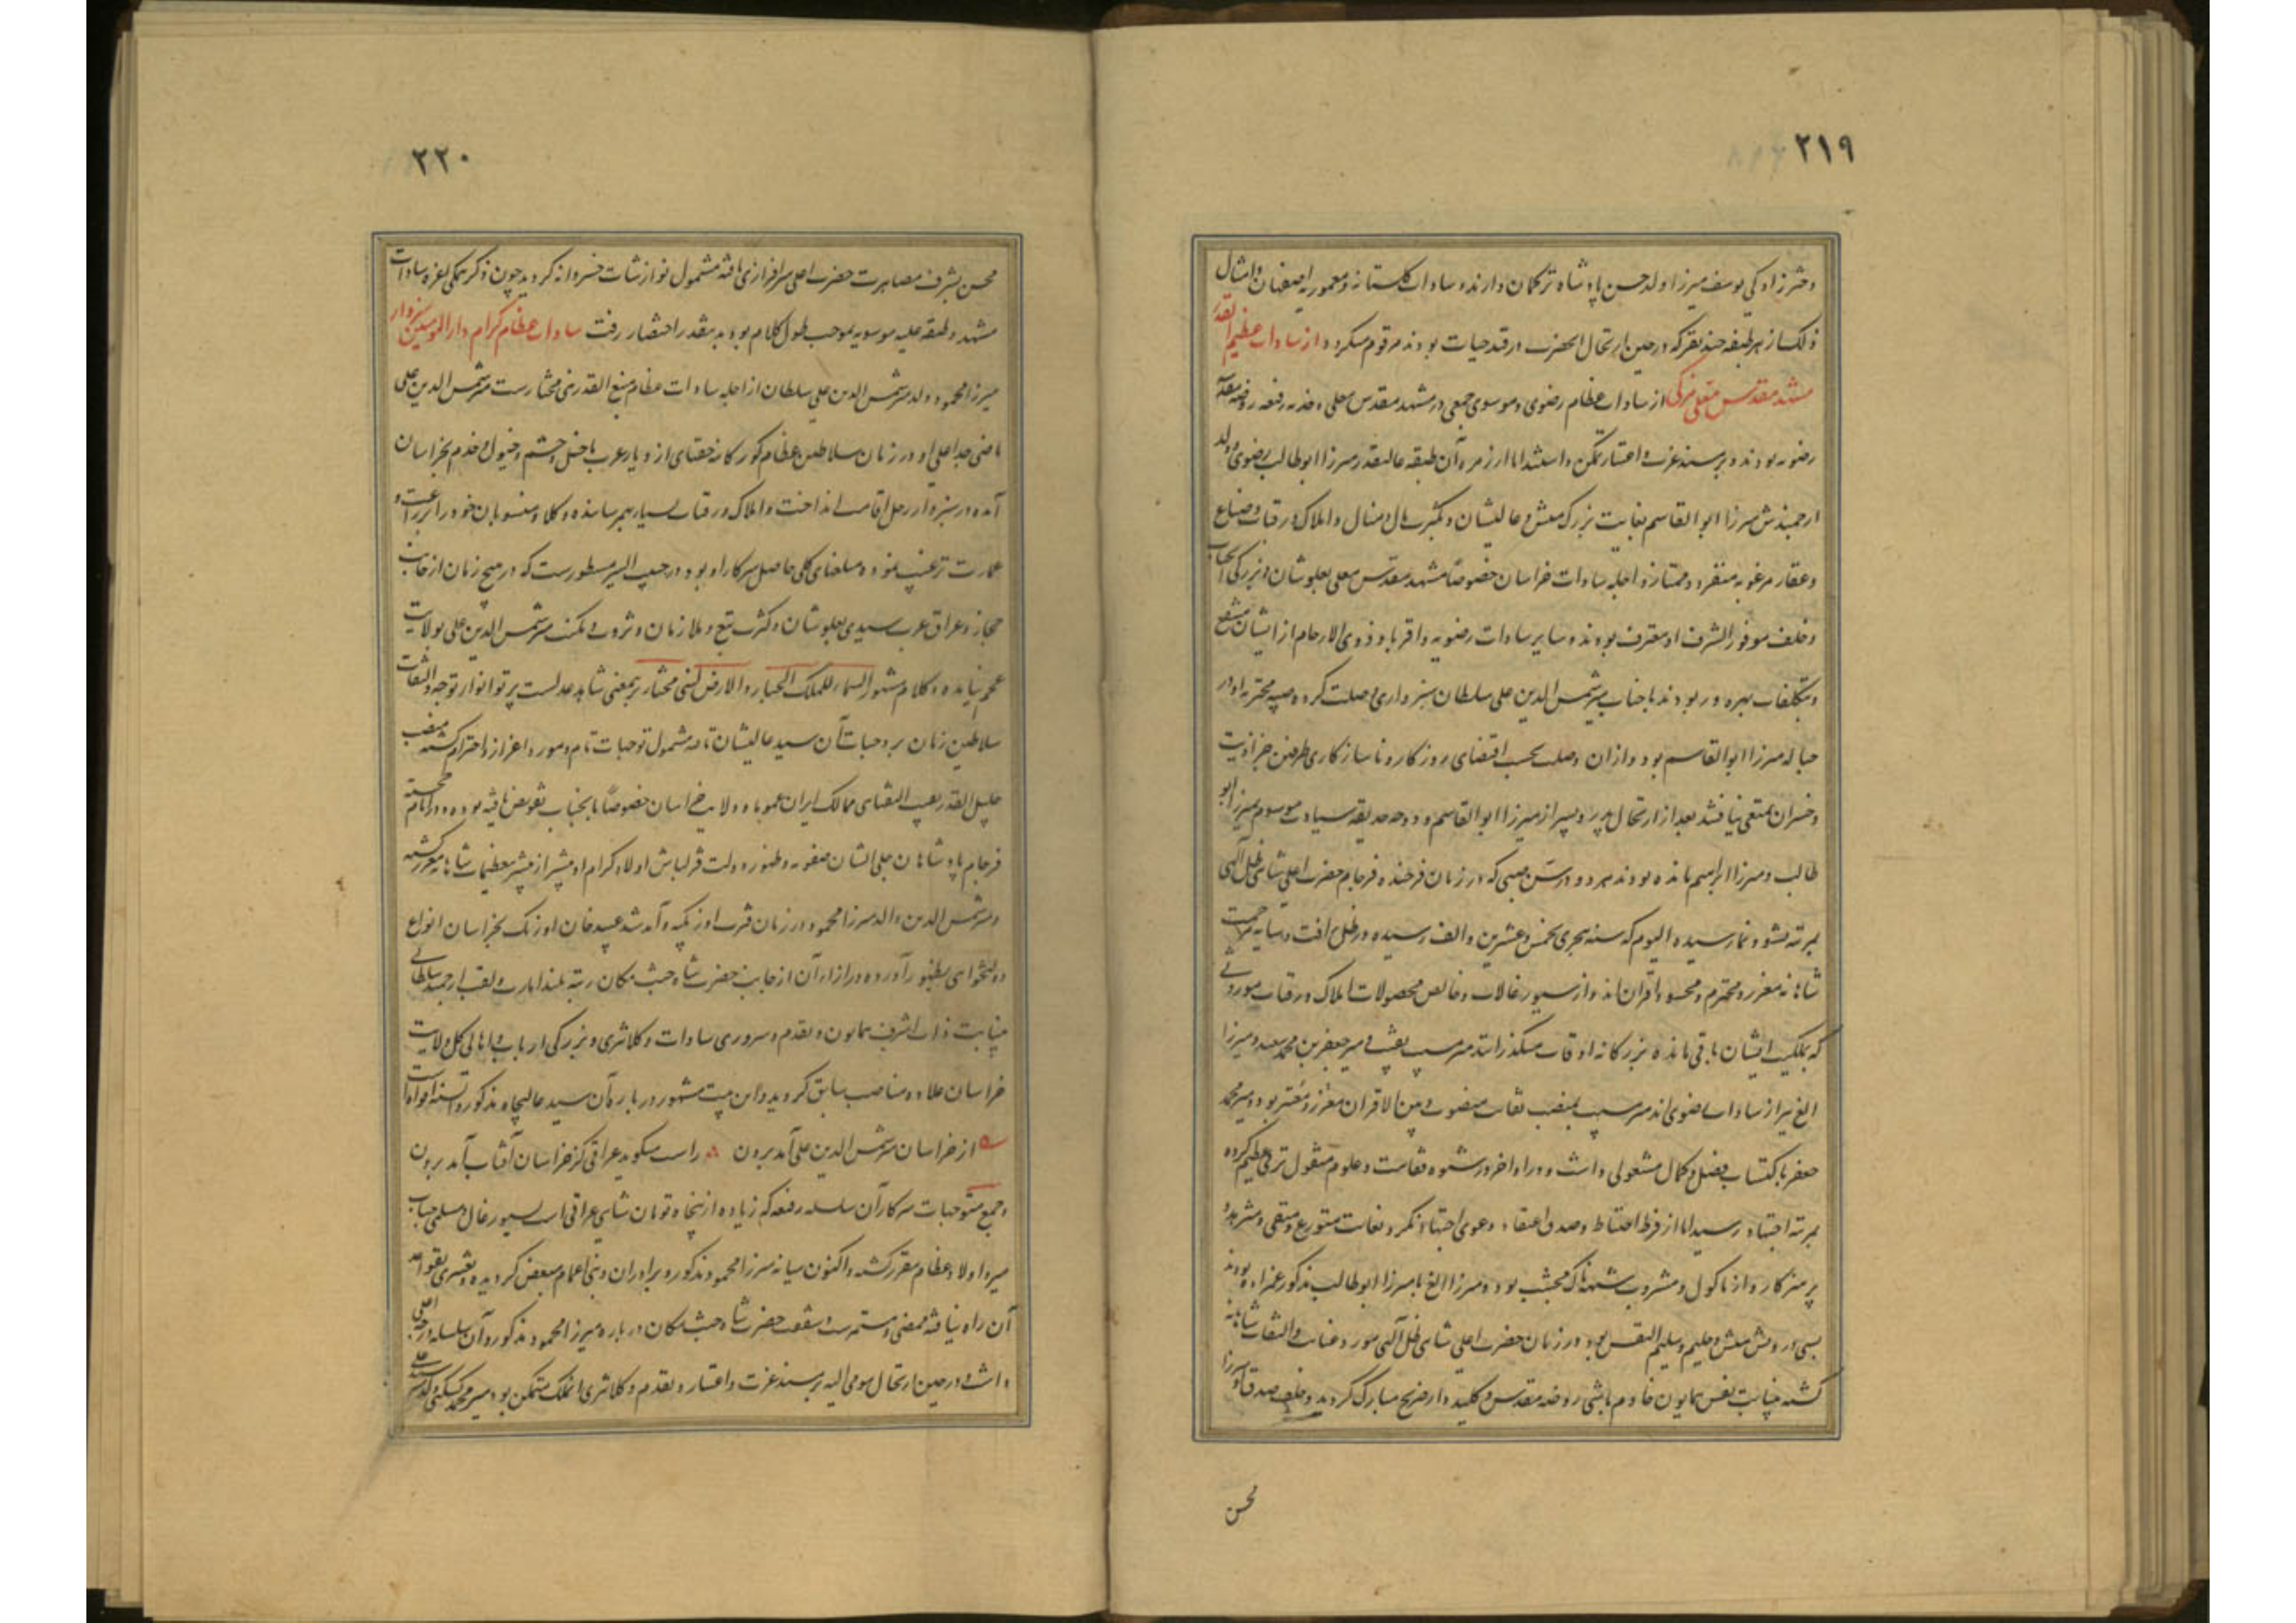 ۲۱۹
دخترزادگی یوسف میرزا ولد حسن پادشاه ترکمان دارند و سادات گلستانه و معموریه اصفهان و امثال
ذلک از هر طبقه چند نفر که در حین ارتحال آنحضرت در قید حیات بودند مرقوم میگردد از سادات عظیم القدر
مشهد مقدس معلی مزکی از سادات عظام رضوی و موسوی جمعی در مشهد مقدس معلی و خدمه رفیعه روضه مقدسه
رضویه بودند و بر مسند عزت و اعتبار تمکن داشتند اما از زمره آن طبقه عالیقدر میرزا ابوطالب رضوی ولد
ارجمندش میرزا ابوالقاسم بغایت بزرگ منش و عالیشان و بکثرت مال و منال و املاک و رقبات و ضیاع
و عقار مرغوبه منفرد و ممتاز و اجله سادات خراسان خصوصاً مشهد مقدس معلی بعلو شان و بزرگی آنجناب
و خلف موفور الشرف او معترف بودند و سایر سادات رضویه و اقربا و ذوی الارحام از ایشان منتفع
و بتکلفات بهره ور بودند با جناب میر شمس الدین علی سلطان سبزواری وصلت کرده صبیه محترمه او در
حباله میرزا ابوالقاسم بود و از آن وصلت بحسب اقتضای روزگار و ناسازگاری طرفین جز اذیت
و خسران تمتعی نیافتند بعد از ارتحال پدر دو پسر از میرزا ابوالقاسم دو دوحه حدیقه سیادت موسوم بمیرزا ابو
طالب و میرزا ابراهیم مانده بودند هر دو در سن صبی که در زمان فرخنده فرجام حضرت اعلی شاهی ظل آلهی
بمرتبه نشو و نما رسیده الیوم که سنه هجری بخمس و عشرین و الف رسیده در ظل رافت و سایه مرحمت
شاهانه معزز و محترم و محسود اقران اند و از سیورغالات و خالص محصولات املاک و رقبات موروثی
که بملکیت ایشان باقی مانده بزرگانه اوقات میگذرانند میر سیب نقیب و میر جعفر بن محمد سعید و میرزا
الغ نیز از سادات رضوی اند میر سیب بمنصب نقابت منصوب و بین الاقران معزز و معتبر بود و میر محمد
جعفر باکتساب فضل و کمال مشغولی داشت و در اواخر در شیوه فقاهت و علوم منقول ترقی عظیم کرده
بمرتبه اجتهاد رسید اما از فرط احتیاط و صدق اعتقاد دعوی اجتهاد نکرد و بغایت متورع و متقی و متشرع بود
پرهیزکار و از ماکول و مشروب شبهناک مجتنب بود و میرزا الغ با میرزا ابوطالب مذکور عمزاده بودند
بسی درویش منش و حلیم و سلیم النفس بود در زمان حضرت اعلی شاهی ظل آلهی مورد عنایت و التفات شاهانه
گشته بنیابت نفس همایون خادم باشی روضه مقدس و کلیددار ضریح مبارک گردید و خلف صدق او میرزا
محسن
۲۲۰
محسن بشرف مصاهرت حضرت اعلی سرافرازی یافته مشمول نوازشات خسروانه گردید چون ذکر همگی اعزه سادات
مشهد و طبقه علیه موسویه موجب طول کلام بود بدینقدر اختصار رفت سادات عظام کرام دارالمومنین سبزوار
میرزا محمود ولد میر شمس الدین علی سلطان از اجله سادات عظام منیع القدر بنی مختارست میر شمس الدین علی
ماضی جد اعلی او در زمان سلاطین عظام کورکانه جغتای از دیار عرب با خیل و حشم و خیول و خدم بخراسان
آمده در سبزوار رحل اقامت انداخت و املاک و رقبات بسیار بهم رسانده و کلا و منسوبان خود را بزراعت و
عمارت ترغیب نموده مبلغهای کلی حاصل سرکار او بود و در حبیب السیر مسطورست که در هیچ زمان از جانب
حجاز و عراق عرب سیدی بعلو شان و کثرت تبع و ملازمان و ثروت و مکنت میر شمس الدین علی بولایت
عجم نیامده و کلام مشهور السماء للملک الجبار و الارض لبنی مختار برینمعنی شاهد عدلست پرتو انوار توجه و التفات
سلاطین زمان بر وجنات آن سید عالیشان تافته مشمول توجهات تام و مورد اعزاز و احترام گشته منصب
جلیل القدر نقیب النقبای ممالک ایران عموما و ولایت خراسان خصوصاً بآنجناب تفویض یافته بود و در ایام خجسته
فرجام پادشاهان جلی الشان صفویه و ظهور دولت قزلباش اولاد کرام او بیشتر از پیشتر معظمات شاهانه معزز گشته
و میر شمس الدین والد میرزا محمود در زمان فترت اوزبکیه و آمد شد عبید خان اوزبک بخراسان انواع
دولتخواهی بظهور آورده در ازاء آن از جانب حضرت شاه جنت مکان رتبه بلند امارت و لقب ارجمند سلطانی
بنیابت ذات اشرف همایون و تقدم و سروری سادات و کلانتری و بزرگی ارباب و اهالی کل ولایت
خراسان علاوه مناصب سابق گردید و این بیت مشهور در باره آن سید عالیجاه مذکور السنه و افواه است
از خراسان میر شمس الدین علی آمد برون راست میگوید عراقی کز خراسان آفتاب آمد برون
و جمیع متوجهات سرکار آن سلسله رفیعه که زیاده از پنجاه تومان شاهی عراقی است بسیورغال و مسلمی جناب
میر و اولاد عظام مقرر گشته و اکنون میانه میرزا محمود مذکور و برادران و بنی اعمام مبعض گردیده و تغییری بقواعد
آن راه نیافته ممضی و مستمرست و شفقت حضرت شاه جنت مکان در باره میرزا محمود مذکور و آن سلسله درجه اعلی
داشت و در حین ارتحال مومی الیه بر مسند عزت و اعتبار و تقدم و کلانتری آنملک متمکن بود میر محمد سکنی ولد میر